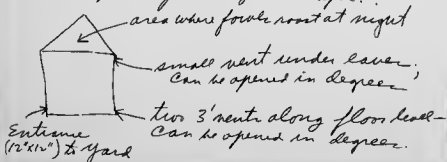 area where fowls roost at night
small vent under eaves;
Can be opened in degrees
two 3' vents along floor level -
Can be opened in degrees.
Entrance
(12"x12") to yard